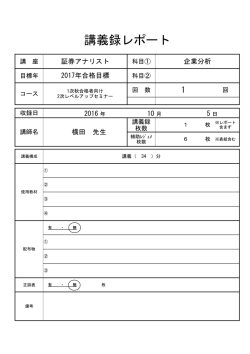 講義録レポート
講 座 証券アナリスト 科目① 企業分析
目標年 2017年合格目標 科目②
コース 1次秋合格者向け 2次レベルアップセミナー 回 数 1 回
収録日 2016 年 10 月 5 日
講師名 横田 先生 講義録枚数 1 枚 ※レポート含まず
補助ﾚｼﾞｭﾒ枚数 6 枚
講義構成 講義 ( 34 ) 分
使用教材 ①
②
③
④
配布物 有 ・ 無
①
②
③
正誤表 有 ・ 無 枚
備考